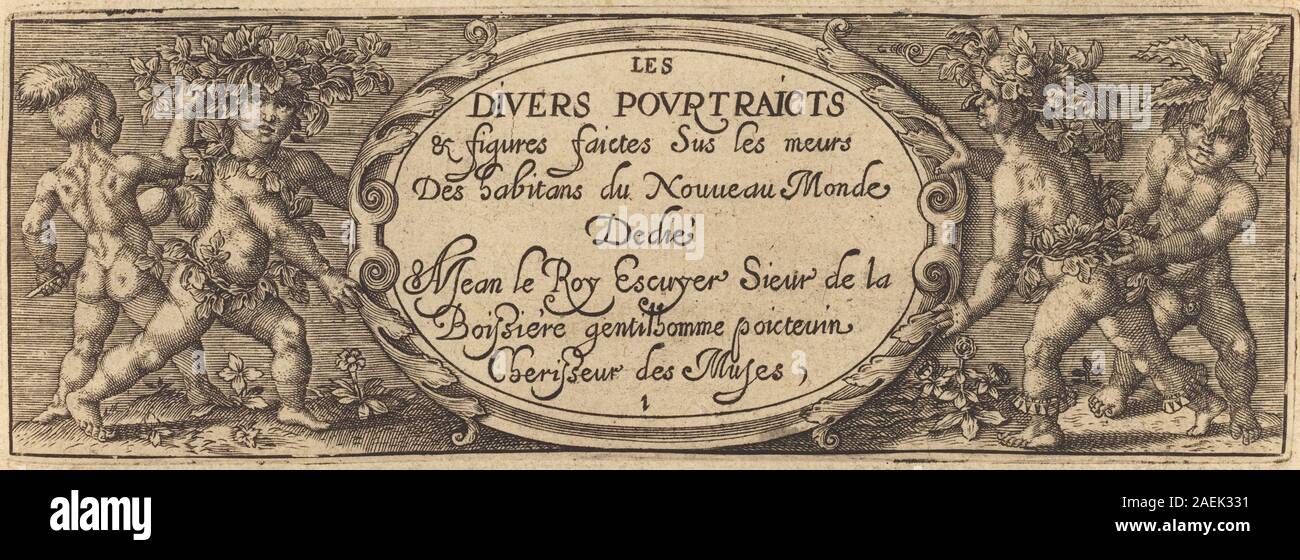 LES
DIVERS POVRTRAICTS
& figures faictes Sus les meurs
Des habitans du Nouueau Monde
Dedié
A Jean le Roy Escuyer Sieur de la
Boissiére gentilhomme poicteuin
Cherisseur des Muses,
1
alamy
Image ID: 2AEK331
www.alamy.com